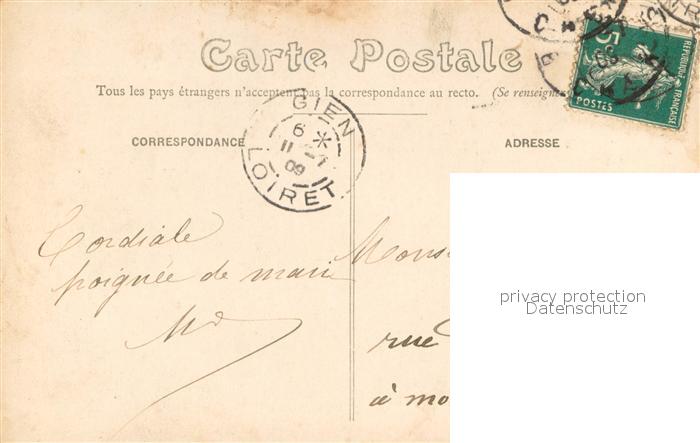 Carte Postale
Tous les pays étrangers n'acceptent pas la correspondance au recto. (Se renseigner
CORRESPONDANCE
ADRESSE
GIEN
6 *
11 - 7
09
LOIRET
5
REPUBLIQUE FRANÇAISE
POSTES
Cordiale
poignée de main
Mons
rue
à mo
privacy protection
Datenschutz